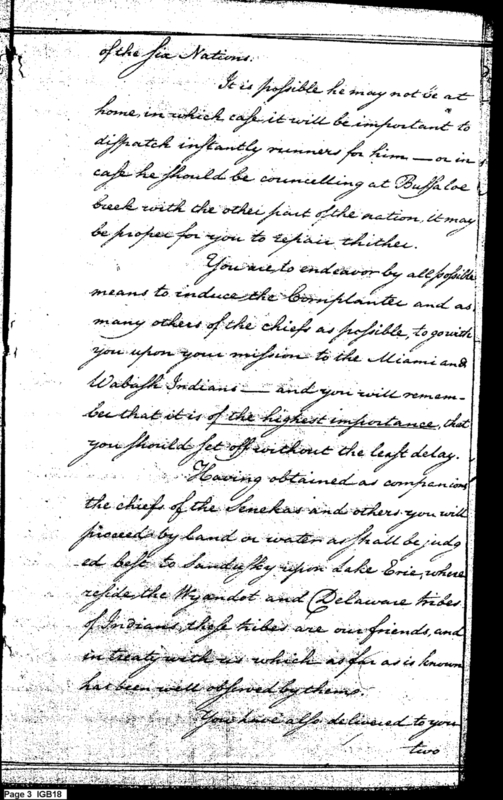 of the six Nations.
It is possible he may not be at
home, in which case it will be important to
dispatch instantly runners for him — or in
case he should be councelling at Buffaloe
Creek with the other part of the nation, it may
be proper for you to repair thither.
You are to endeavor by all possible
means to induce the Cornplanter and as
many others of the chiefs as possible, to go with
you upon your mission to the Miami and
Wabash Indians — and you will remem-
ber that it is of the highest importance, that
you should set off without the least delay.
Having obtained as companions
the chiefs of the Senekas and others you will
proceed by land or water as shall be judg
ed best to Sandusky upon Lake Erie, where
reside, the Wyandot and Delaware tribes
of Indians, these tribes are our friends, and
in treaty with us which as far as is known
has been well observed by them.
You have also delivered to you
two
Page 3 IGB18